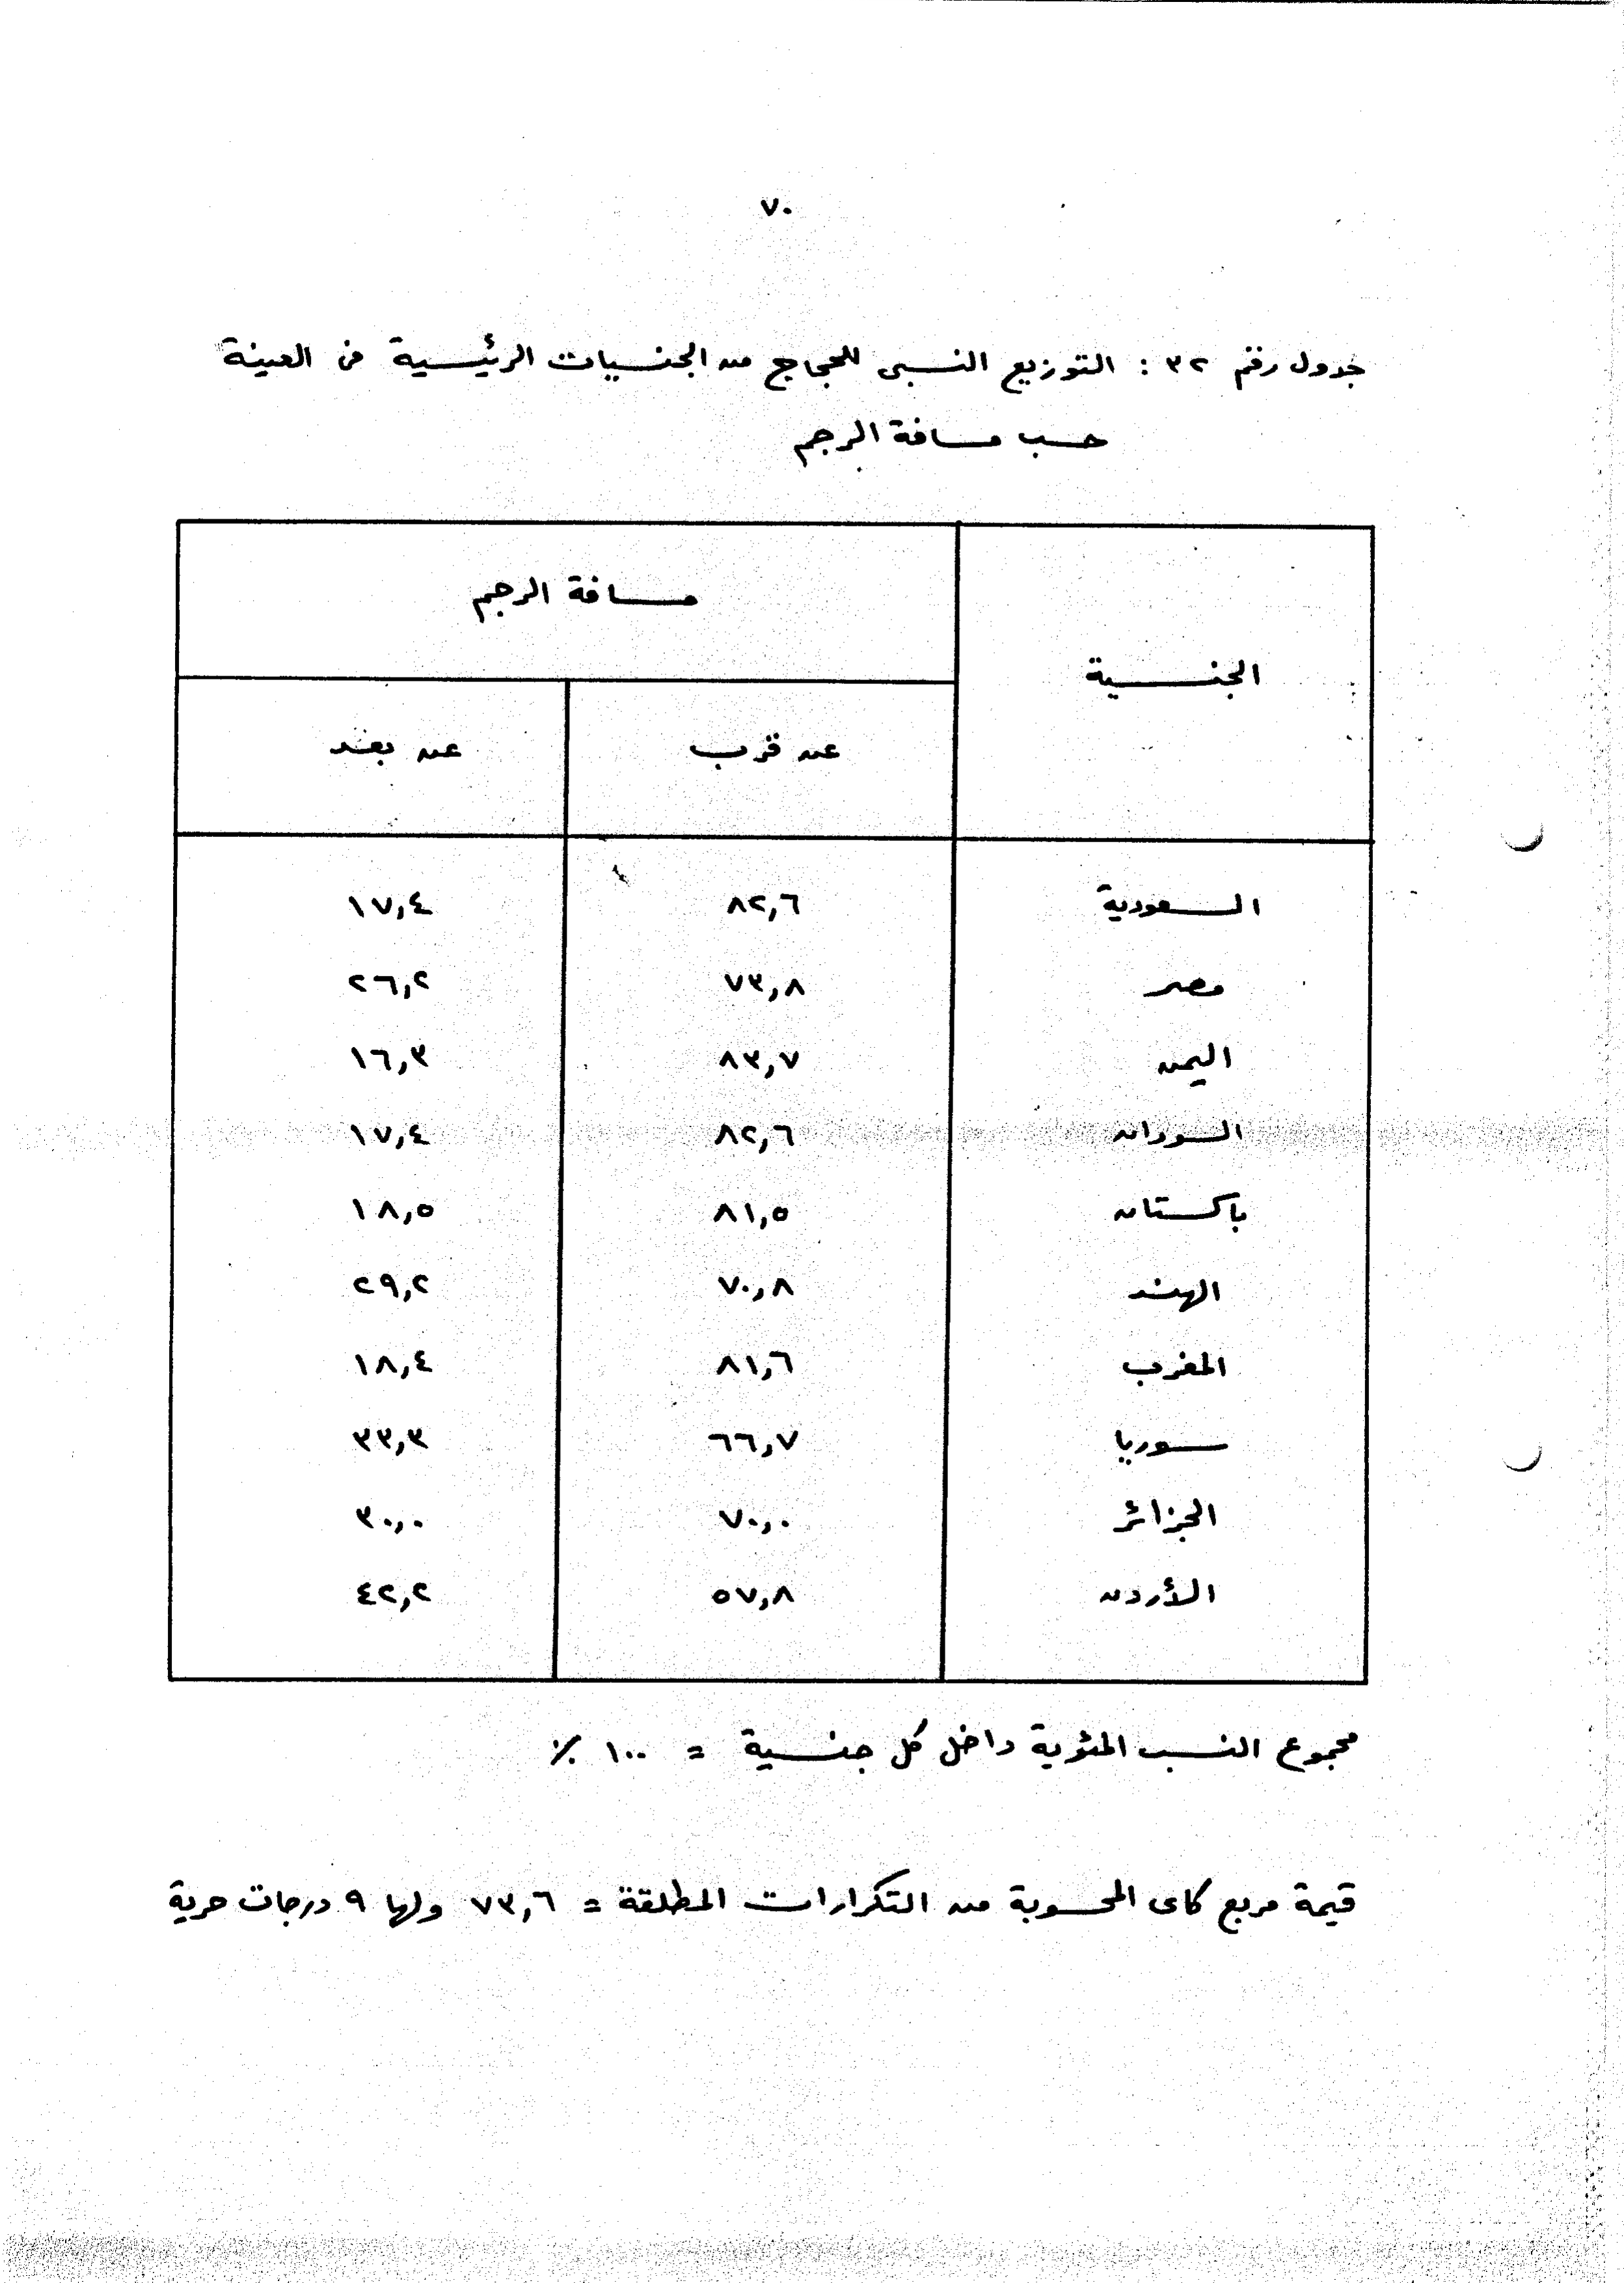 ٧٠
جدول رقم ٣٢ : التوزيع النسبى للحجاج من الجنسيات الرئيسية فى العينة
حسب مسافة الرجم
الجنسية
مسافة الرجم
عن قرب عن بعد
السعودية ٨٢,٦ ١٧,٤
مصر ٧٣,٨ ٢٦,٢
اليمن ٨٣,٧ ١٦,٣
السودان ٨٢,٦ ١٧,٤
باكستان ٨١,٥ ١٨,٥
الهند ٧٠,٨ ٢٩,٢
المغرب ٨١,٦ ١٨,٤
سوريا ٦٦,٧ ٣٣,٣
الجزائر ٧٠,٠ ٣٠,٠
الأردن ٥٧,٨ ٤٢,٢
مجموع النسب المئوية داخل كل جنسية = ١٠٠ ٪
قيمة مربع كاى المحسوبة من التكرارات المطلقة = ٧٣,٦ ولها ٩ درجات حرية